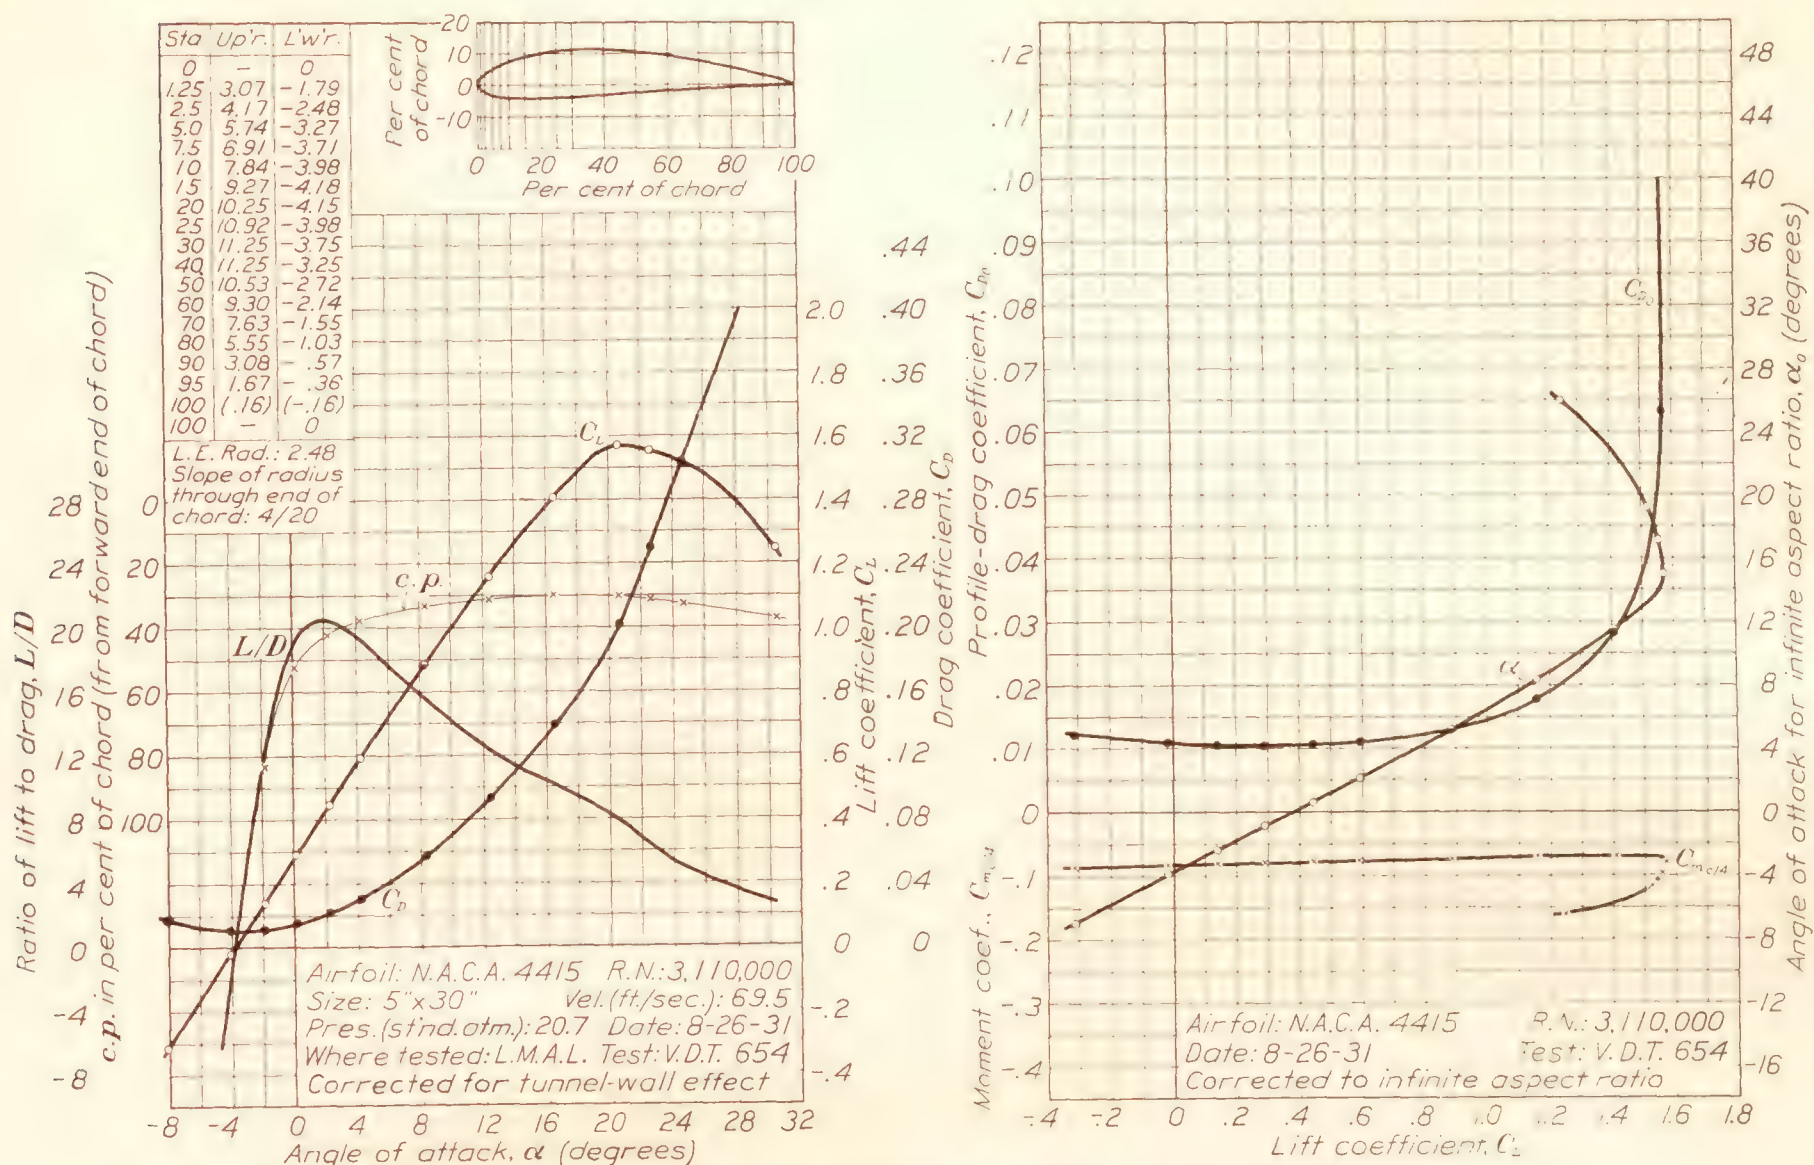 Sta Up'r. L'w'r.
0 – 0
1.25 3.07 -1.79
2.5 4.17 -2.48
5.0 5.74 -3.27
7.5 6.91 -3.71
10 7.84 -3.98
15 9.27 -4.18
20 10.25 -4.15
25 10.92 -3.98
30 11.25 -3.75
40 11.25 -3.25
50 10.53 -2.72
60 9.30 -2.14
70 7.63 -1.55
80 5.55 -1.03
90 3.08 - .57
95 1.67 - .36
100 (.16) (-.16)
100 – 0
L.E. Rad.: 2.48
Slope of radius
through end of
chord: 4/20
Per cent
of chord
-20
10
0
-10
0 20 40 60 80 100
Per cent of chord
Ratio of lift to drag, L/D
28
24
20
16
12
8
4
0
-4
-8
c.p. in per cent of chord (from forward end of chord)
0
20
40
60
80
100
C_L
c.p.
L/D
C_D
2.0
1.8
1.6
1.4
1.2
1.0
.8
.6
.4
.2
0
-.2
-.4
Lift coefficient, C_L
.44
.40
.36
.32
.28
.24
.20
.16
.12
.08
.04
0
Drag coefficient, C_D
Airfoil: N.A.C.A. 4415 R.N.: 3,110,000
Size: 5"x30" Vel.(ft./sec.): 69.5
Pres.(st'nd. atm.): 20.7 Date: 8-26-31
Where tested: L.M.A.L. Test: V.D.T. 654
Corrected for tunnel-wall effect
-8 -4 0 4 8 12 16 20 24 28 32
Angle of attack, α (degrees)
Profile-drag coefficient, C_D0
.12
.11
.10
.09
.08
.07
.06
.05
.04
.03
.02
.01
0
Moment coef., C_m c/4
-.1
-.2
-.3
-.4
C_D0
α₀
C_m c/4
48
44
40
36
32
28
24
20
16
12
8
4
0
-4
-8
-12
-16
Angle of attack for infinite aspect ratio, α₀ (degrees)
Airfoil: N.A.C.A. 4415 R.N.: 3,110,000
Date: 8-26-31 Test: V.D.T. 654
Corrected to infinite aspect ratio
-.4 -.2 0 .2 .4 .6 .8 1.0 1.2 1.4 1.6 1.8
Lift coefficient, C_L